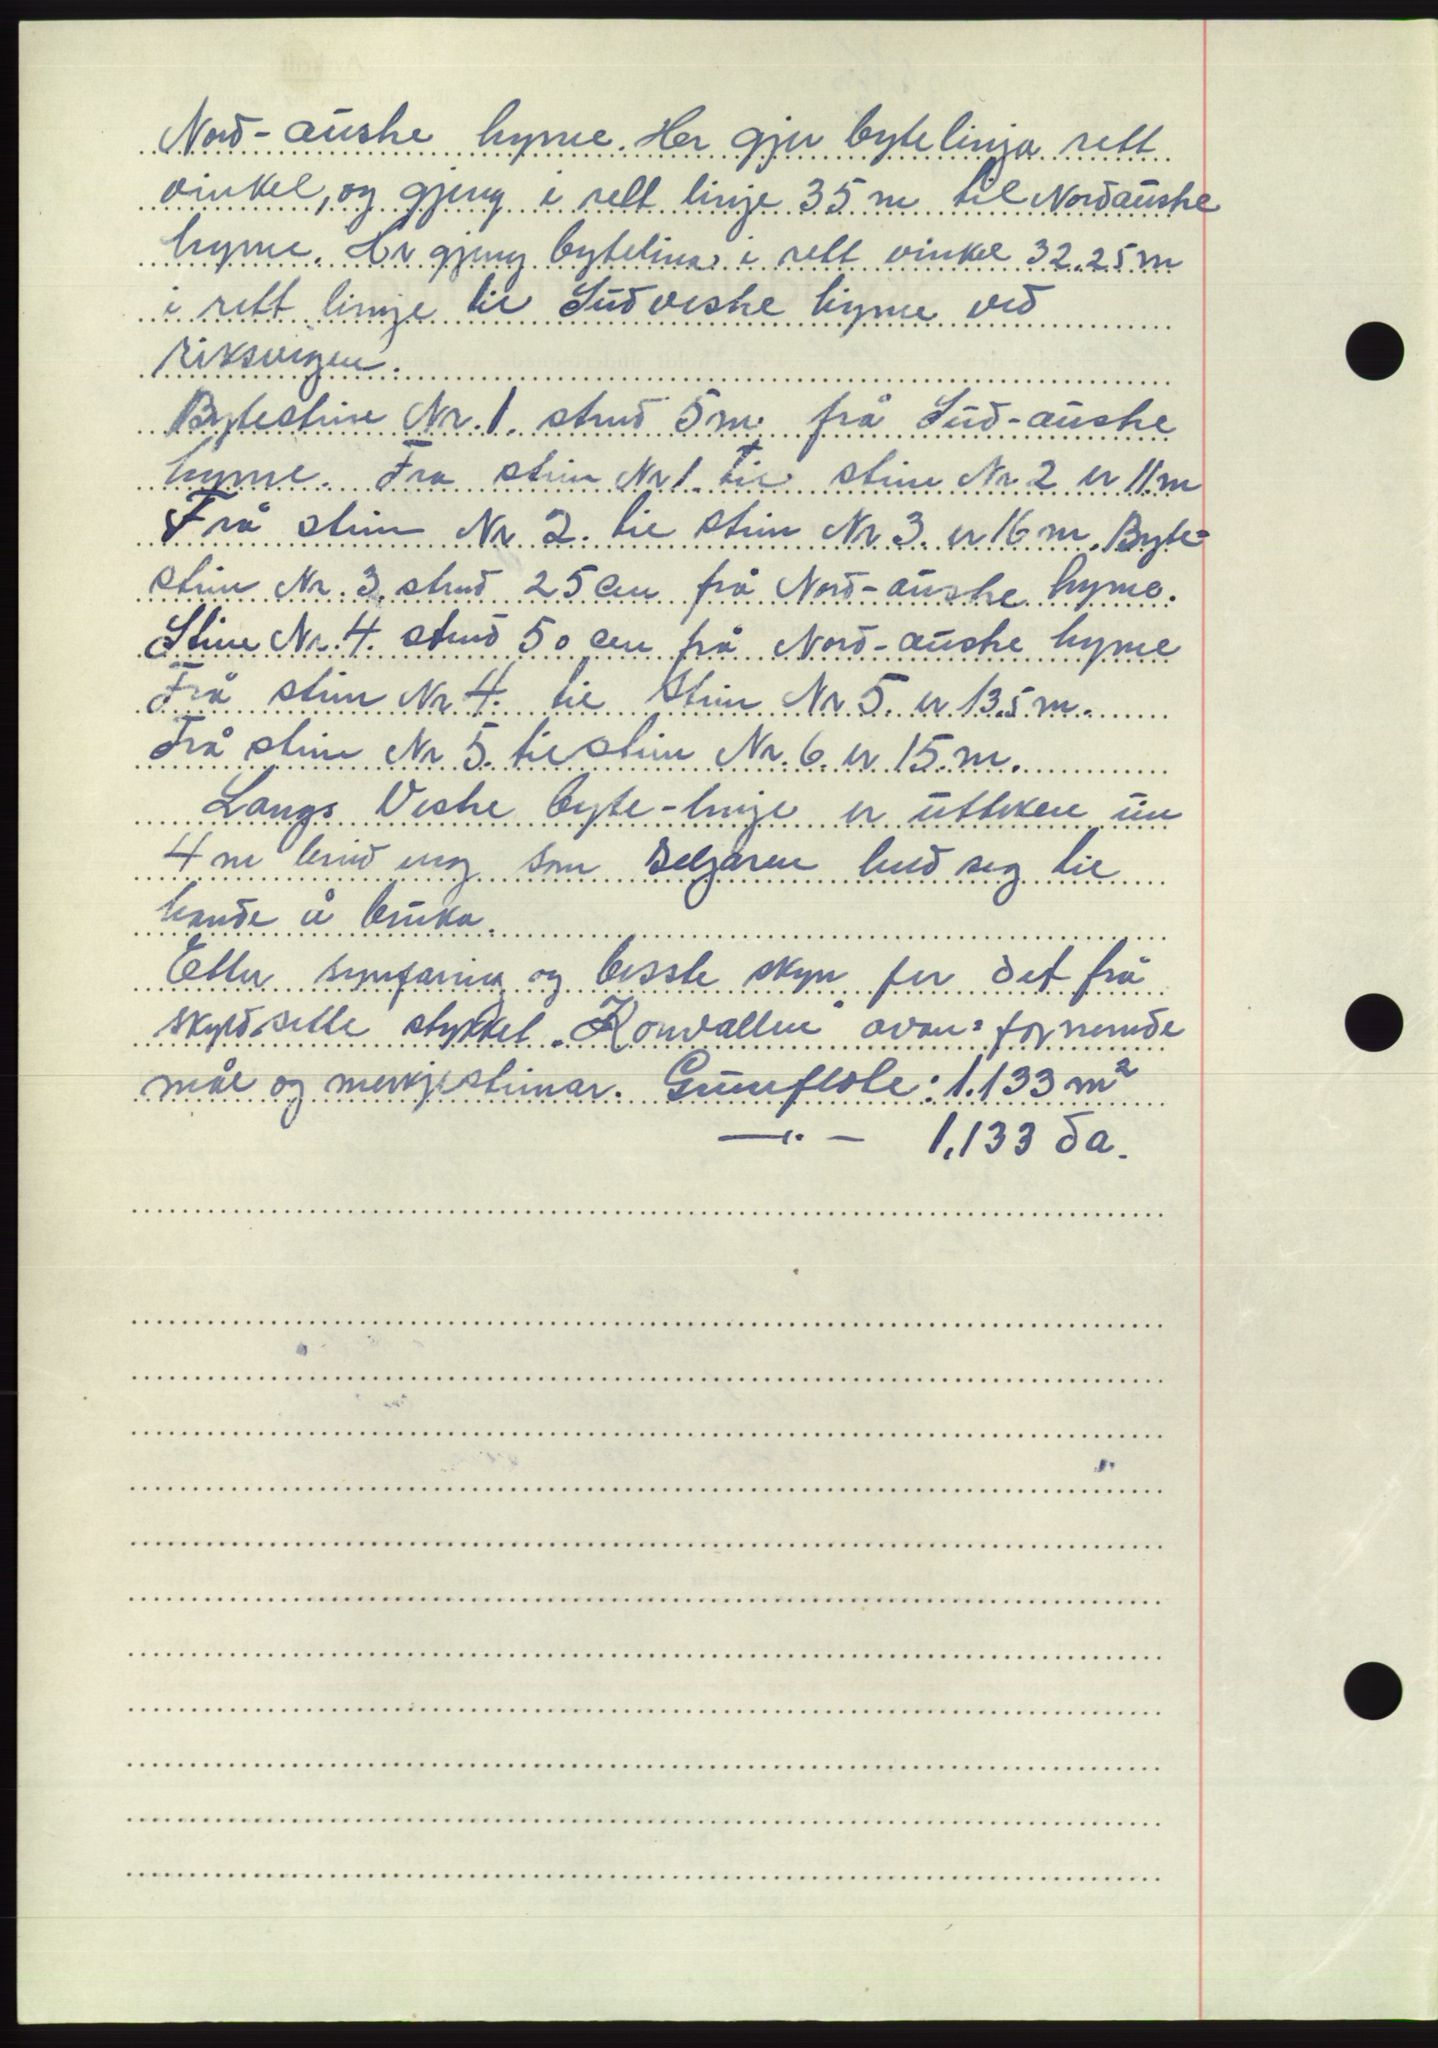 Nord-auske hyrne. Her gjer bytelinja rett
vinkel, og gjeng i rett linje 35 m til Nordauske
hyrne. Her gjeng bytelina i rett vinkel 32.25 m
i rett linje til Sudveske hyrne ved
riksvegen.
Bytestein Nr. 1. stend 5 m frå Sud-auske
hyrne. Fra stein Nr 1. til stein Nr 2 er 11 m
Frå stein Nr 2. til stein Nr 3. er 16 m. Byte=
stein Nr. 3. stend 25 cm frå Nord-auske hyrne.
Stein Nr. 4. stend 50 cm frå Nord-auske hyrne
Frå stein Nr 4. til stein Nr 5. er 13.5 m.
Frå stein Nr 5. til stein Nr. 6. er 15. m.
Langs Veske byte-linje er utteken ein
4 m breid veg som Seljaren held seg til
hande å bruka.
Etter synfaring og beste skyn fer det frå
skyldsette stykket "Konvallen" ovan=fornemde
mål og merkjesteinar. Grunnflate: 1.133 m²
—"— 1,133 da.